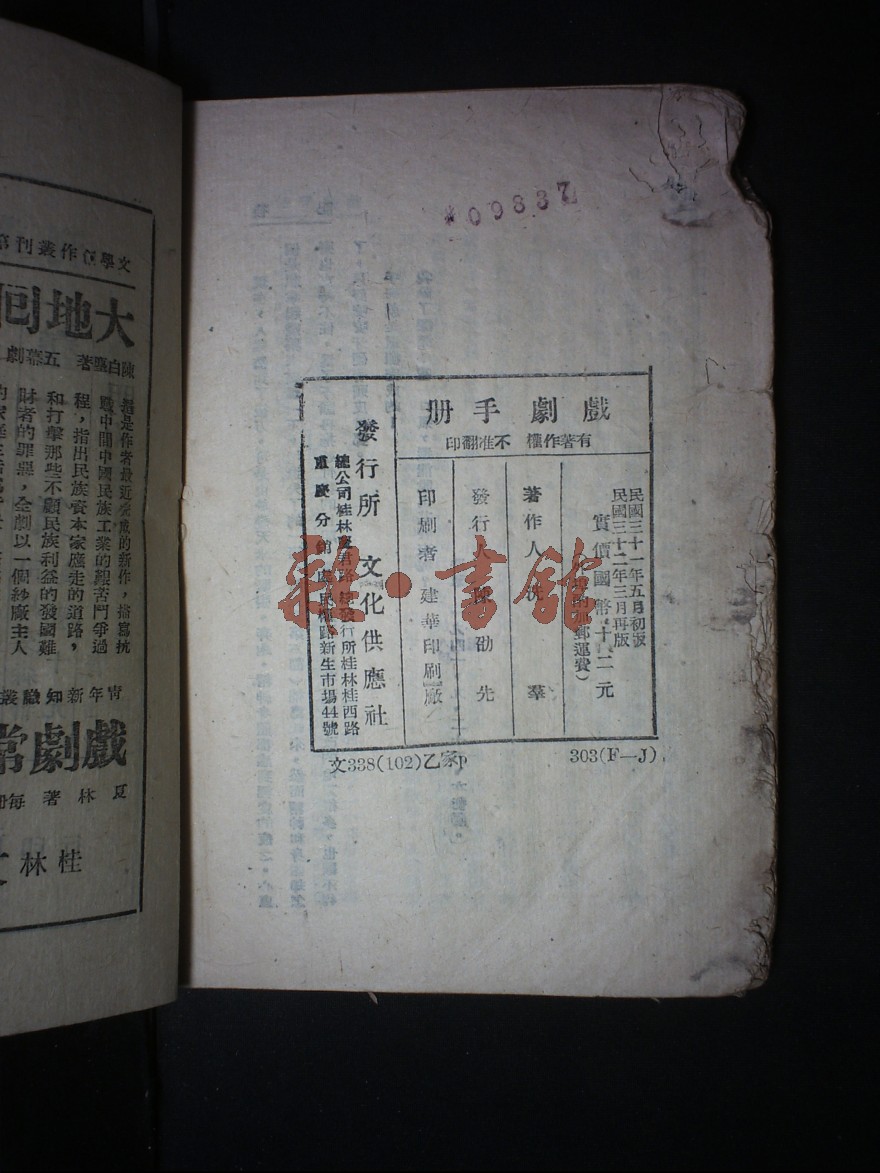 *09837
戲劇手册
有著作權 不准翻印
民國三十一年五月初版
民國三十二年三月再版
實價國幣十二元
郵運費）
著作人 洗羣
發行人 陳劭先
印刷者 建華印刷廠
發行所 文化供應社
總公司桂林
總發行所桂林桂西路
重慶分銷處民權路新生市場44號
文338(102)乙家
303(F—J)
文學創作叢刊
大地回
陳白塵著 五幕劇
這是作者最近完成的新作，描寫抗
戰中間中國民族工業的艱苦鬥爭過
程，指出民族資本家應走的道路，
和打擊那些不顧民族利益的發國難
財者的罪惡，全劇以一個紗廠主人
青年新知識叢
戲劇常
夏林著 每冊
桂林
彩·書館